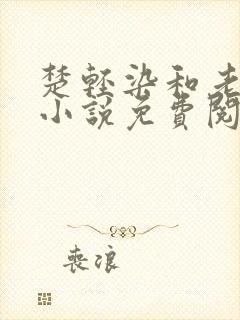 楚轻染和老
小説免費閱
喪浪